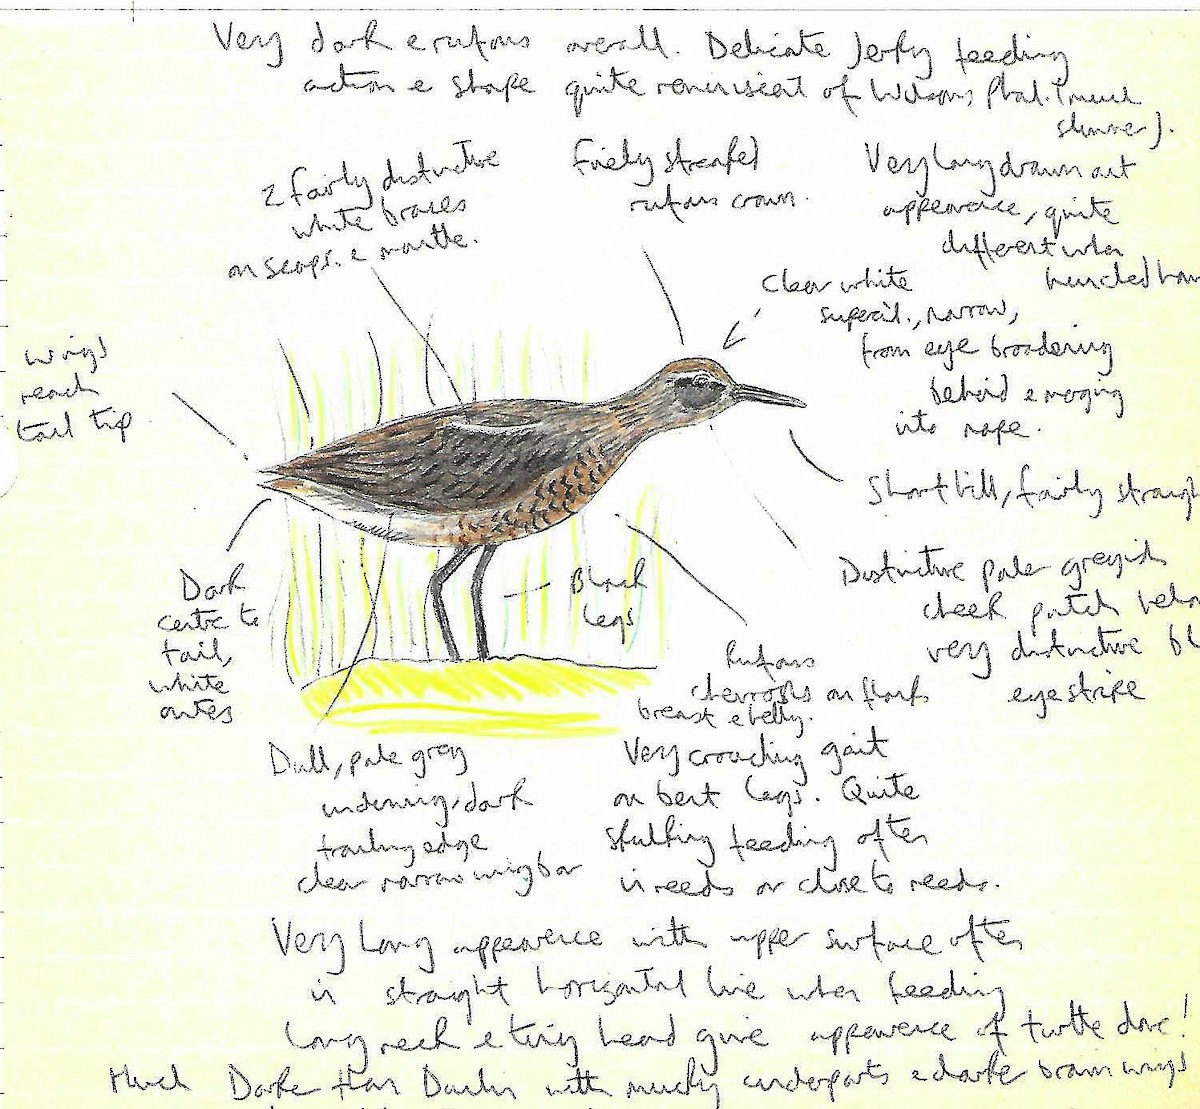 Very dark & rufous overall. Delicate Jerky feeding
action & shape quite reminiscent of Wilsons Phal. (much
slimmer).
2 fairly distinctive
white braces
on scaps. & mantle.
Finely streaked
rufous crown.
Very long drawn out
appearence, quite
different when
hunched
Clear white
supercil., narrow,
from eye broadening
behind & merging
into nape.
Wings
reach
tail tip
Short bill, fairly
Distinctive pale greyish
cheek patch
very distinctive
eyestripe
Dark
centre to
tail,
white
outers
Black
Legs
Rufous
chevrons on flanks
breast & belly.
Dull, pale grey
underwing, dark
trailing edge
clear narrow wingbar
Very crouching gait
on bent legs. Quite
skulking feeding often
in reeds or close to reeds.
Very Long appearence with upper surface often
in straight horizontal line when feeding
Long neck & tiny head give appearence of turtle dove!
Much Darker than Dunlin with murky underparts & darker brown wings